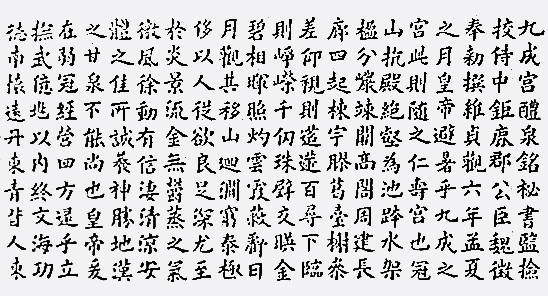 九成宮醴泉銘秘書監撿
挍侍中鉅鹿郡公臣魏徵
奉勅撰維貞觀六年孟夏
之月皇帝避暑乎九成之
宮此則隨之仁壽宮也冠
山抗殿絕壑為池跨水架
楹分巖竦闕高閣周建長
廊四起棟宇膠葛臺榭參
差仰視則迢遰百尋下臨
則崢嶸千仞珠璧交暎金
碧相暉照灼雲霞蔽虧日
月觀其移山迴澗窮泰極
侈以人從欲良足深尤至
於炎景流金無鬱蒸之氣
微風徐動有信淒清涼安
體之佳所誠養神勝地漢
之甘泉不能尚也皇帝爰
在弱冠經營四方逮乎立
撫武億兆以內終文海功
德南懷遠丹東青皆人東